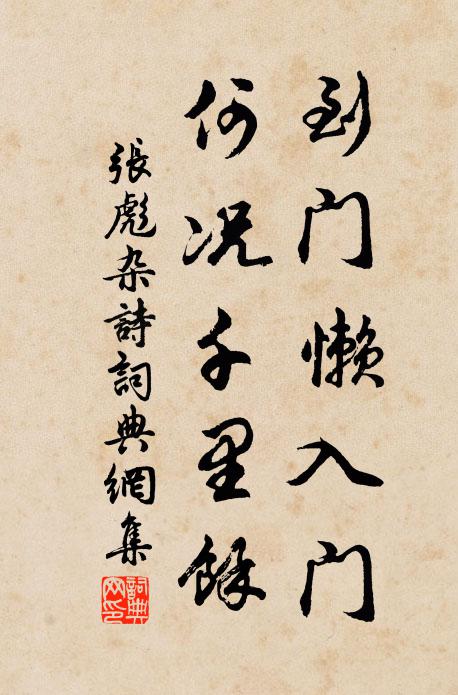 到门懒入门
何况千里餘
張彪杂詩詞典網集
詞典网印